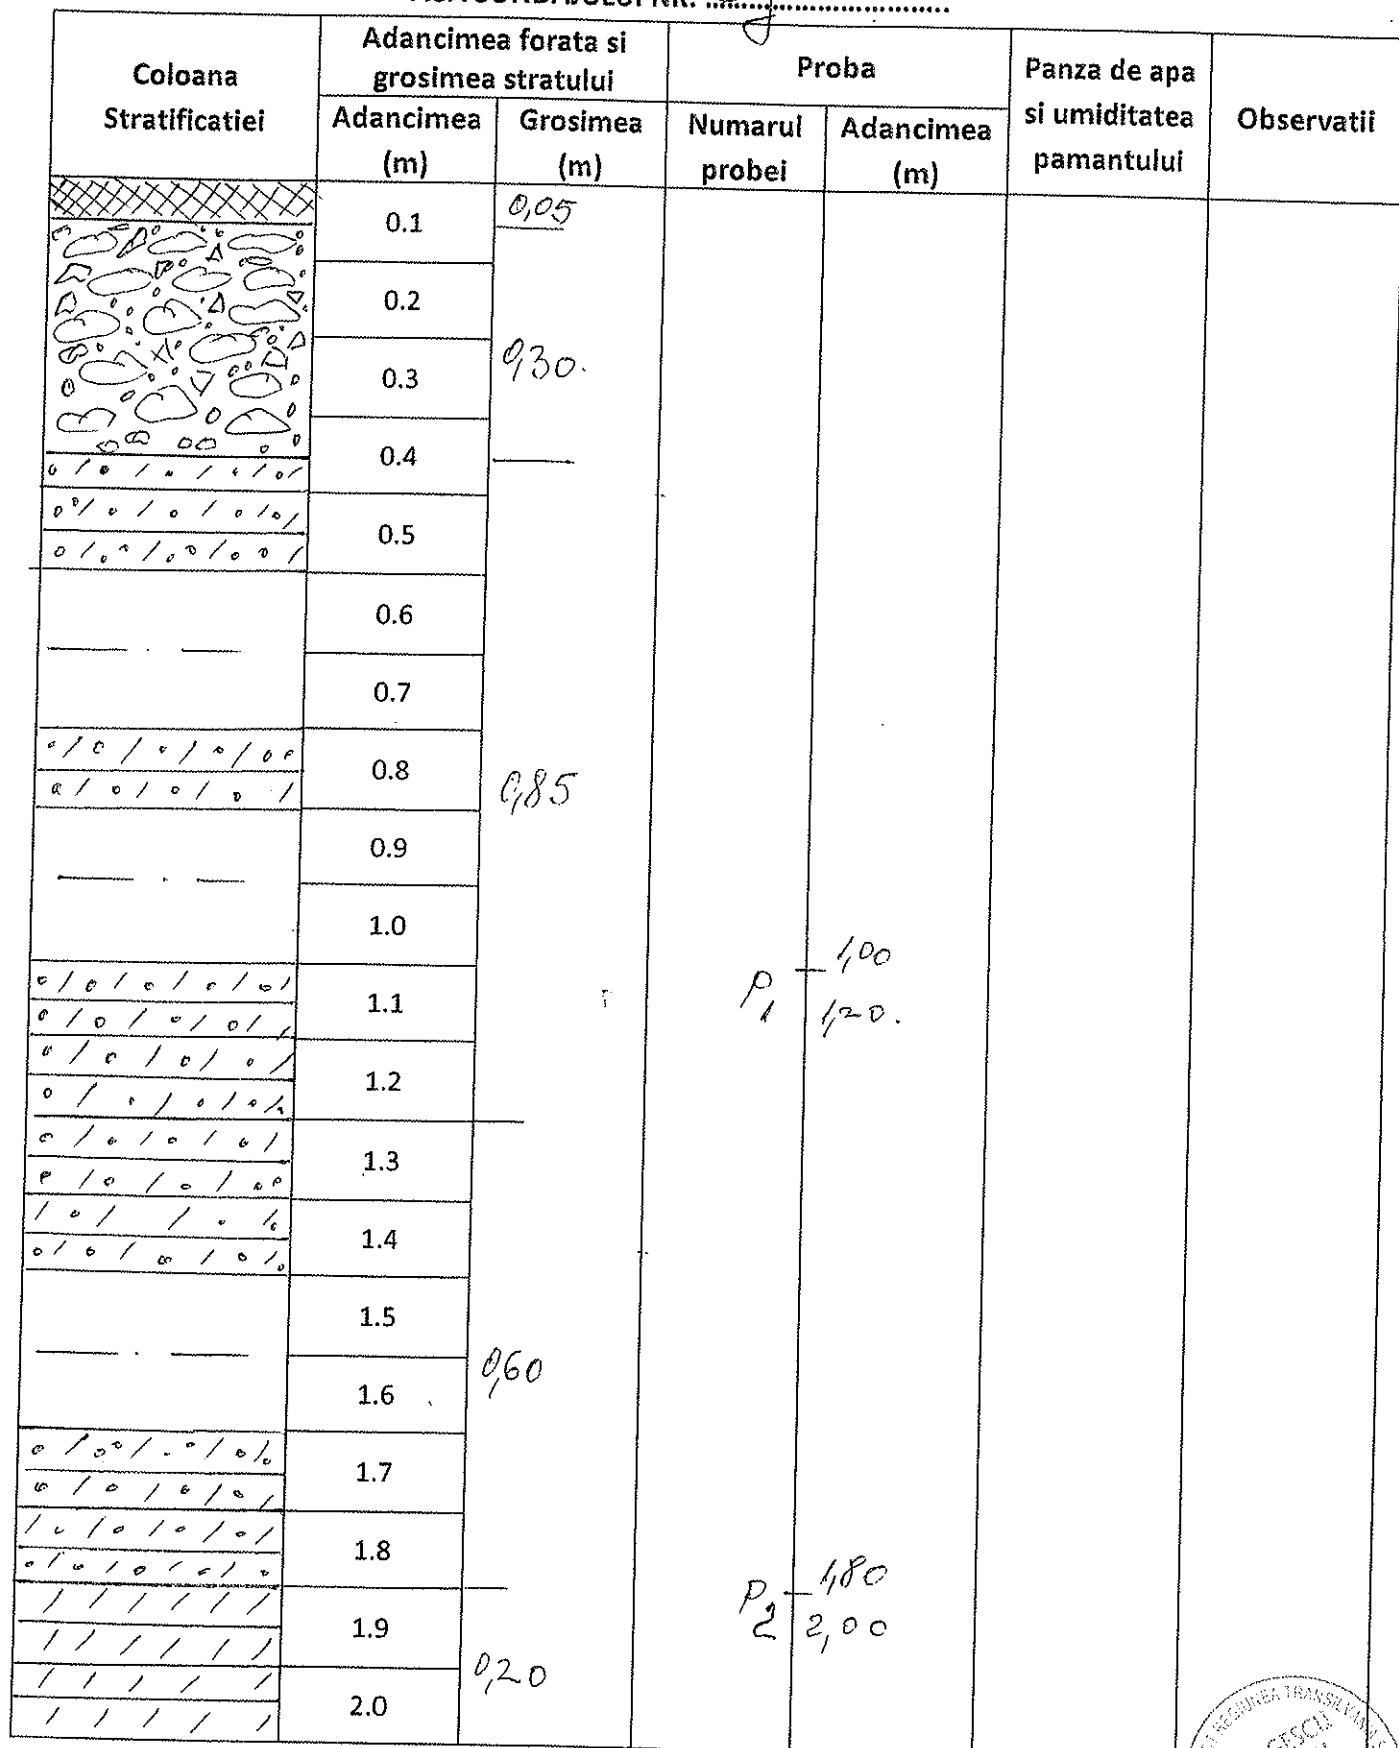 NR.
Coloana
Stratificatiei
Adancimea forata si
grosimea stratului
Adancimea
(m)
Grosimea
(m)
Proba
Numarul
probei
Adancimea
(m)
Panza de apa
si umiditatea
pamantului
Observatii
0.1
0,05
0.2
0.3
0,30.
0.4
0.5
0.6
0.7
0.8
0,85
0.9
1.0
1.1
P1
1,00
1,20.
1.2
1.3
1.4
1.5
1.6
0,60
1.7
1.8
1.9
P2
1,80
2,00
2.0
0,20
REGIUNEA TRANSILVANIA